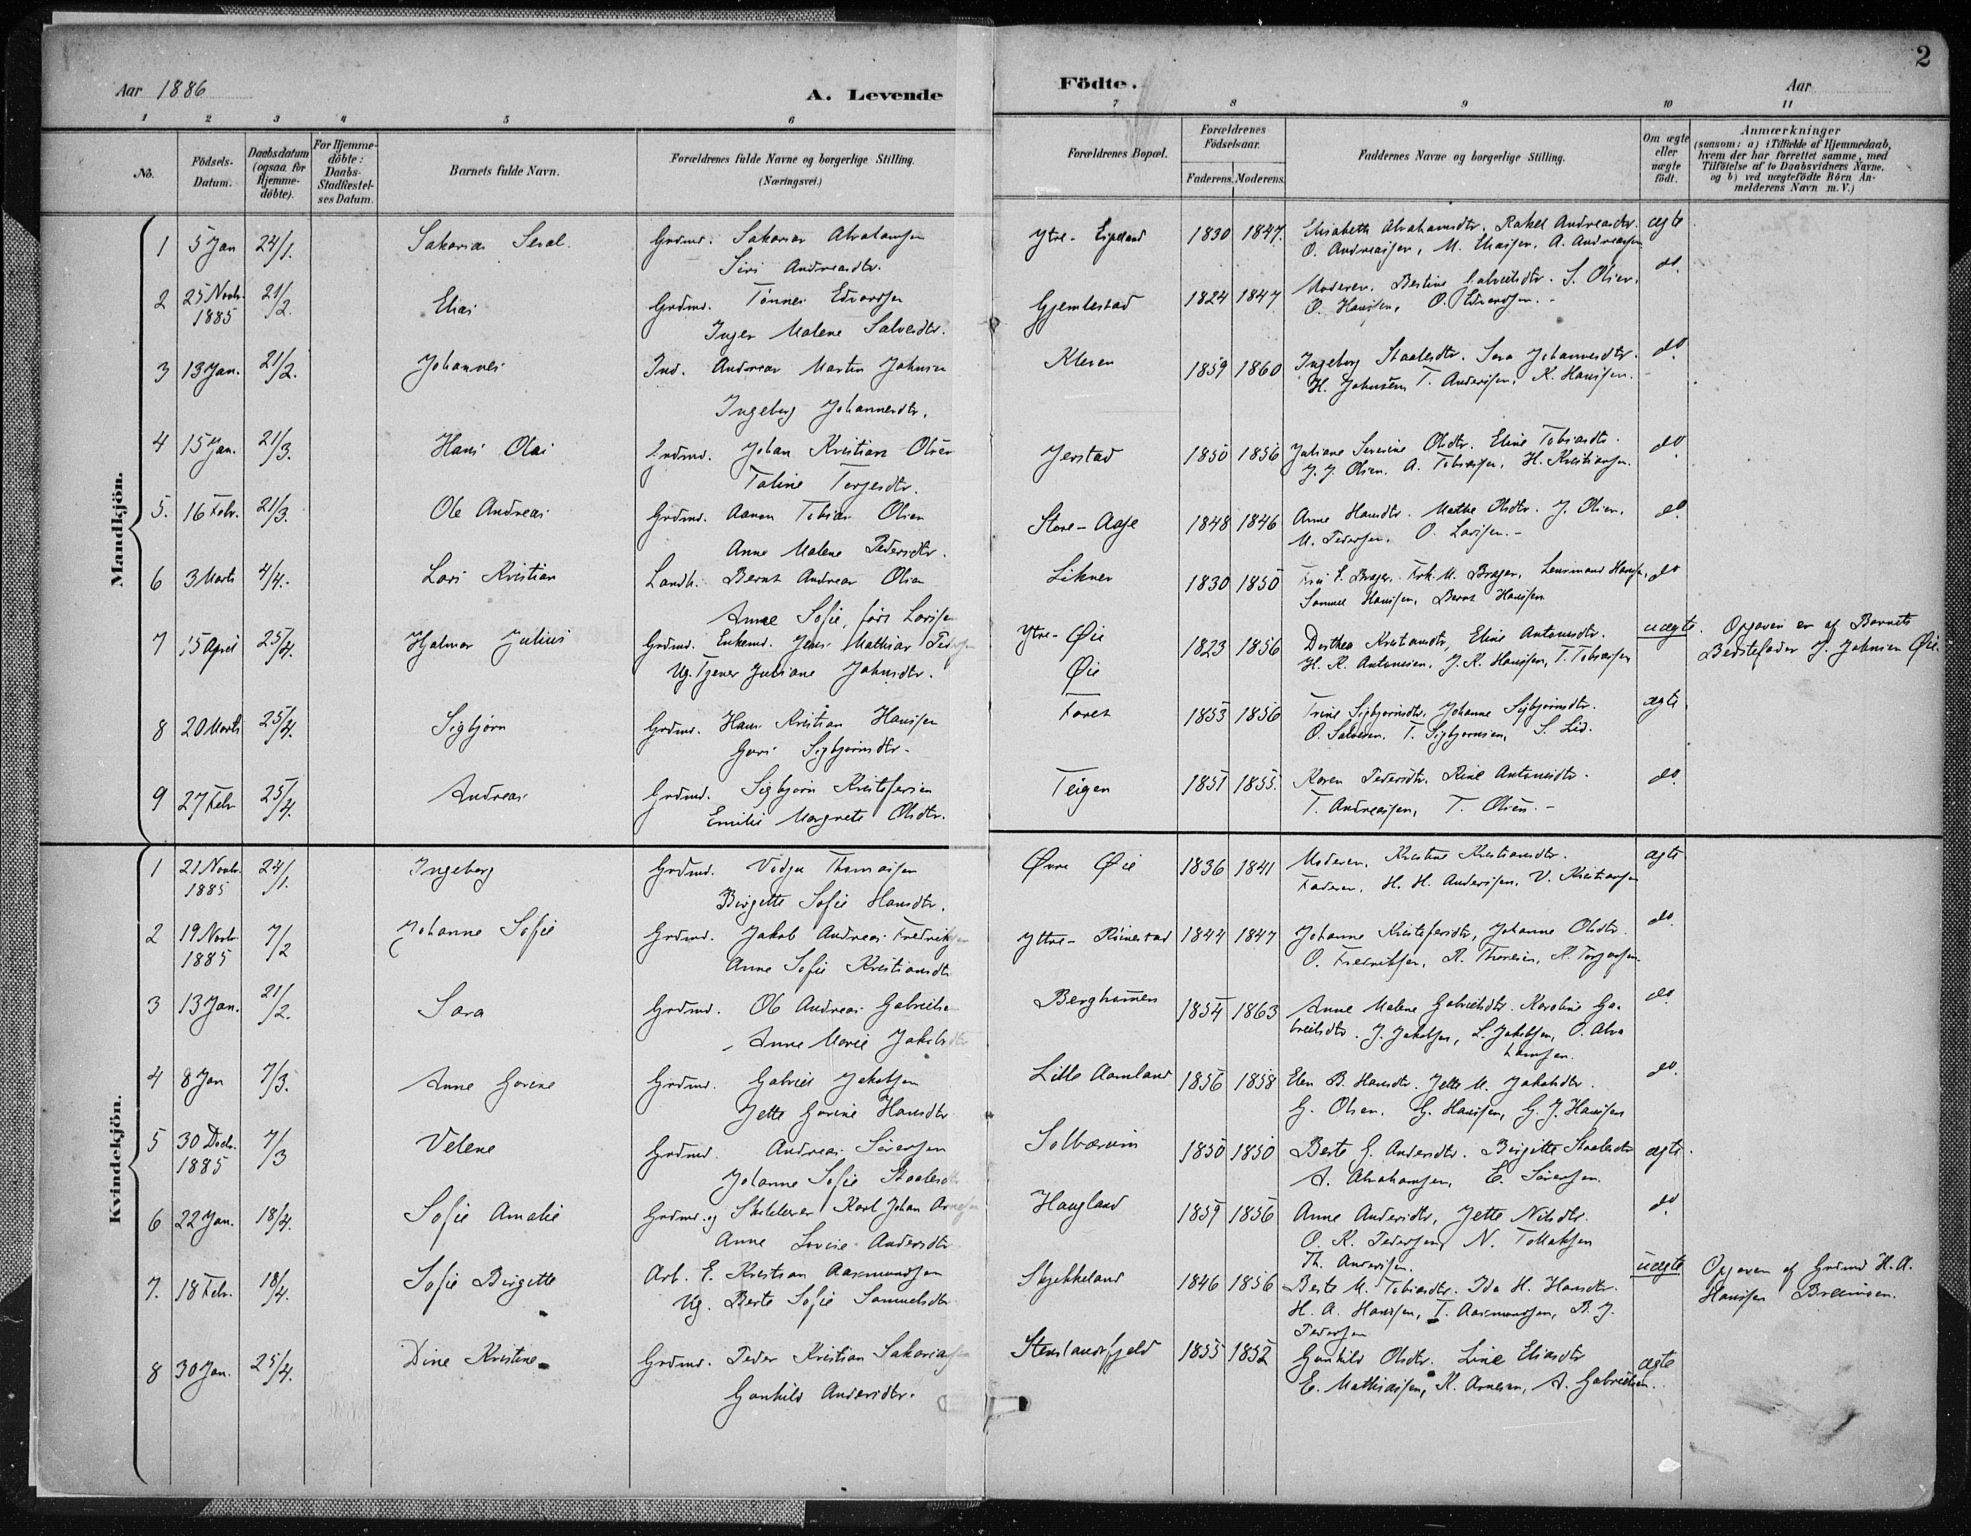 2
Aar 1886
A. Levende Födte.
Aar
1 2 3 4 5 6 7 8 9 10 11
No.
Födsels-Datum.
Daabsdatum (ogsaa for Hjemme-döbte).
For Hjemme-döbte: Daabs-Stadfæstel-ses Datum.
Barnets fulde Navn.
Forældrenes fulde Navne og borgerlige Stilling. (Næringsvei.)
Forældrenes Bopæl.
Forældrenes Födselsaar.
Faderens. Moderens.
Faddernes Navne og borgerlige Stilling.
Om ægte eller uægte födt.
Anmærkninger
(saasom: a) i Tilfælde af Hjemmedaab, hvem der har forrettet samme, med Tilföielse af to Daabsvidners Navne. og b) ved uægtefödte Börn Anmelderens Navn m. V.)
Mandkjön.
1 5 Jan 24/1. Sakarias Grdmd. Sakarias Abrahamsen Ytre- 1830 1847. Elisabeth Abrahamsdtr, Rakel Andreasdtr. ægte
Siri Andreasdtr. O. Andreassen, M. Eliassen, A. Andreassen
2 25 Novb. 1885 21/2. Elias Grdmd. Tønnes Edvardsen Gjemlestad 1824 1847 Moderen, Bertine Gabrielsdtr. S. Olsen, do.
Inger Malene Salvesdtr. O. Hansen, O. Edvardsen. -
3 13 Jan. 21/2. Johannes Ind. Andreas Martin Johnsen Kleven 1859 1860 Ingeborg Staalesdtr. Sara Johannesdtr. do.
Ingeborg Johannesdtr. H. Johnsen, T. Andersen, K. Hansen.
4 15 Jan. 21/3. Hans Olai Grdmd. Johan Kristian Olsen Jerstad 1850 1856 Juliane Severine Olsdtr. Eline Tobiasdtr. do.
Taline Torjesdtr. J. J. Olsen. A. Tobiassen, H. Kristiansen.
5. 16 Febr. 21/3. Ole Andreas Grdmd. Aanen Tobias Olsen Store- 1848 1846 Anne Hansdtr. Mathe Olsdtr. J. Olsen, do.
Anne Malene Pedersdtr. M. Pedersen. O. Larsen. -
6 3 Marts 4/4. Lars Kristian Landh. Bernt Andreas Olsen Liknes 1830 1850 Frk. M. Lensmand Hansen, do
Anne Sofie, født Larsen Samuel Hansen, Bernt Hansen
7 15 April 25/4. Hjalmar Julius Grdmd. Enkemd. Jens Mathias Ytre- Øie 1823 1856 Dorthea Kristiansdtr, Eline Antonsdtr. uægte. Opgaven er af Barnets
Ug. Tjener Juliane Johnsdtr. Øie H. K. Antonsen. J. K. Hansen, T. Tobiassen Bedstefader J. Johnsen Øie.
8 20 Marts 25/4. Sigbjørn Grdmd. Hans Kristian Hansen 1853 1856 Trine Sigbjørnsdtr. Johanne Sigbjørnsdtr. ægte.
Guri Sigbjørnsdtr. - O. Salvesen, T. Sigbjørnsen, S. Lid.
9 27 Febr 25/4. Andreas Grdmd. Sigbjørn Kristofersen Teigen 1851 1855. Karen Pedersdtr. Antonsdtr. do.
Emilie Margrete Olsdtr. T. Andreassen, T. Olsen. -
Kvindekjön.
1 21 Novb. 1885 24/1. Ingeborg Grdmd. Thomassen Øvre Øie 1836 1841 Moderen, Kirstine Kristiansdtr. ægte
Birgitte Sofie Hansdtr. Faderen, H. H. Andersen, V. Kristiansen
2 19 Novb. 1885 7/2 Johanne Sofie Grdmd. Jakob Andreas Fredriksen Yttre- Risnestad 1844 1847 Johanne Kristofersdtr, Johanne Olsdtr. do.
Anne Sofie Kristiansdtr O. Fredriksen, R. Thorsen, K. Torjesen.
3 13 Jan. 21/2. Sara Grdmd. Ole Andreas Gabrielsen Berghammen 1854 1863 Anne Malene Gabrielsdtr. Karoline Ga- do.
Anne Marie Jakobsdtr brielsdtr. J. Jakobsen, L. Jakobsen, O. Abra
hamsen.
4 8 Jan 7/3. Anne Gurine Grdmd. Gabriel Jakobsen Lille Aamland 1856 1858 Elen B. Hansdtr. Jette M. Jakobsdtr. do.
Jette Gurine Hansdtr G. Olsen. G. Hansen, G. J. Hansen
5 30 Decb. 1885 7/3 Velene Grdmd. Andreas Sørensen 1850 1850 Berte G. Andersdtr. Birgitte Staalesdtr ægte.
Johanne Sofie Staalesdtr A. Abrahamsen, E. Sørensen.
6 22 Jan. 18/4. Sofie Amalie Grdmd. og Karl Johan Haugland 1859 1856 Anne Andersdtr, Jette Nilsdtr. do.
Anne Lovise Andersdtr O. K. Pedersen, N. Tollaksen
Th. Andersen.
7. 18 Febr. 18/4. Sofie Birgitte Arb. E. Kristian Aasmundsen Skjekkeland 1846 1856 Berte M. Tobiasdtr. Ida H. Hansdtr. uægte Opgaven af Grdmd H. A.
Ug. Berte Sofie Samuelsdtr H. A. Hansen, T. Aasmundsen, B. J. Hansen
Pedersen
8 30 Jan. 25/4. Dine Kristine Grdmd. Peder Kristian Sakariassen Stenslandsfjeld 1855 1852 Gunhild Olsdtr. Line Eliasdtr ægte
Gunhild Andersdtr. E. Mathiassen, K. Arnesen, A. Gabrielsen.